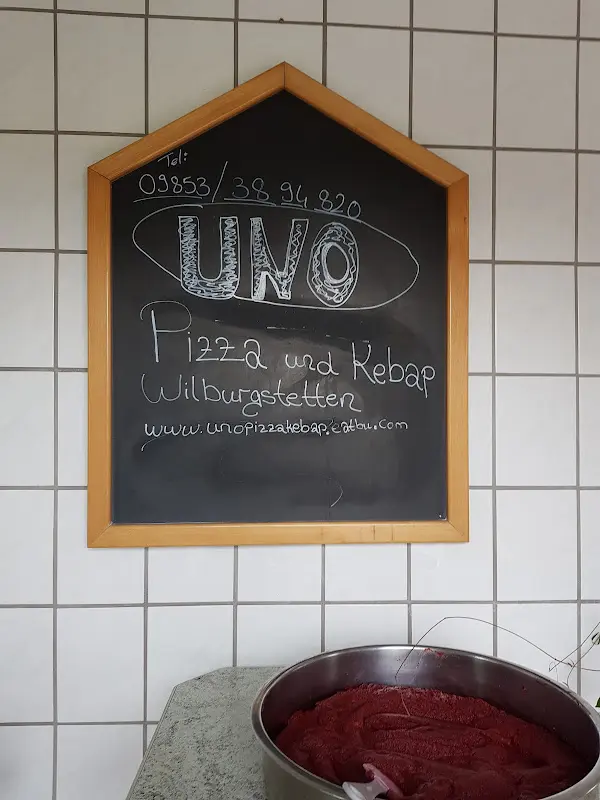 Tel:
09853/38 94 820
UNO
Pizza und Kebap
Wilburgstetten
www.unopizzakebap.eatbu.com